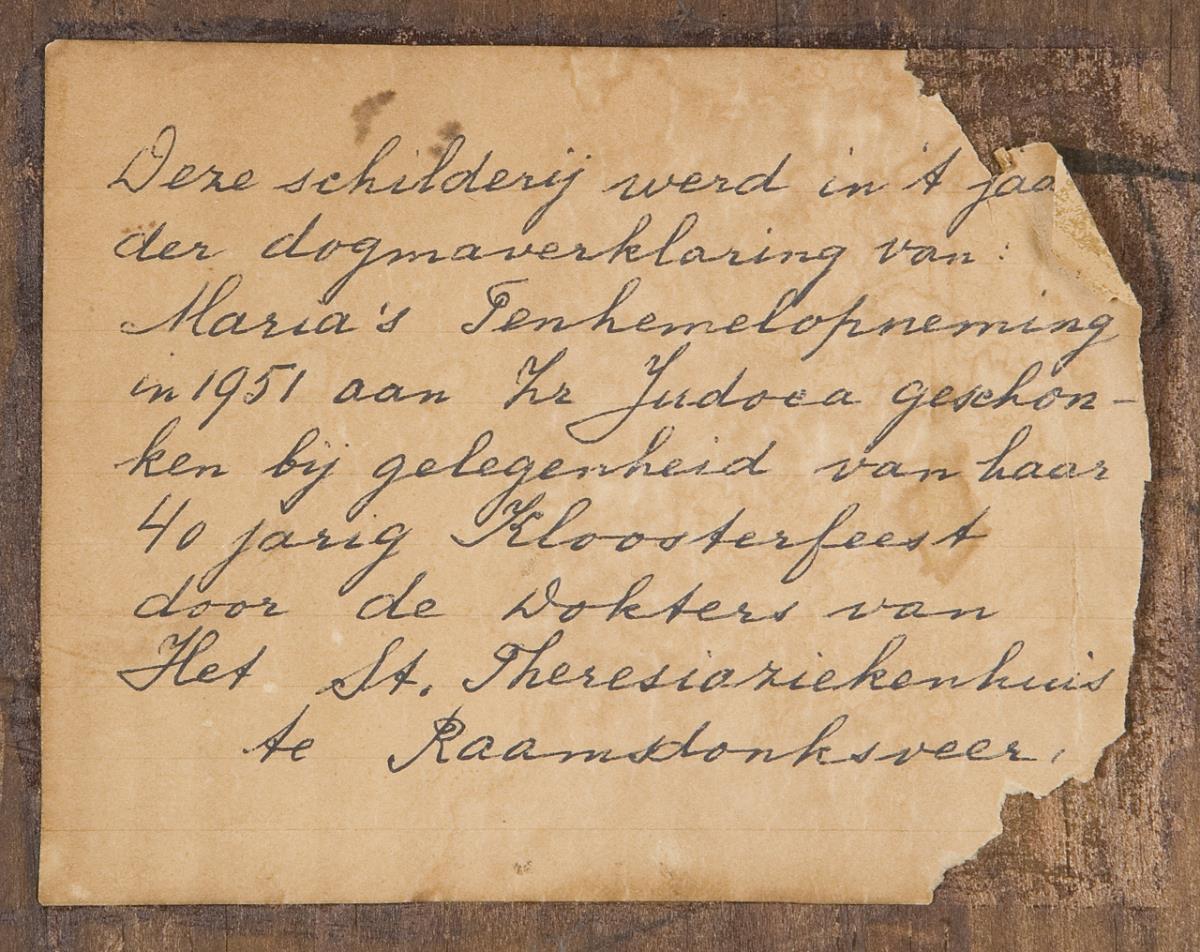 Deze schilderij werd in 't jaa
der dogmaverklaring van:
Maria's Tenhemelopneming
in 1951 aan Zr Judoca geschon-
ken bij gelegenheid van haar
40 jarig Kloosterfeest
door de Dokters van
Het St. Theresiaziekenhuis
te Raamsdonksveer.